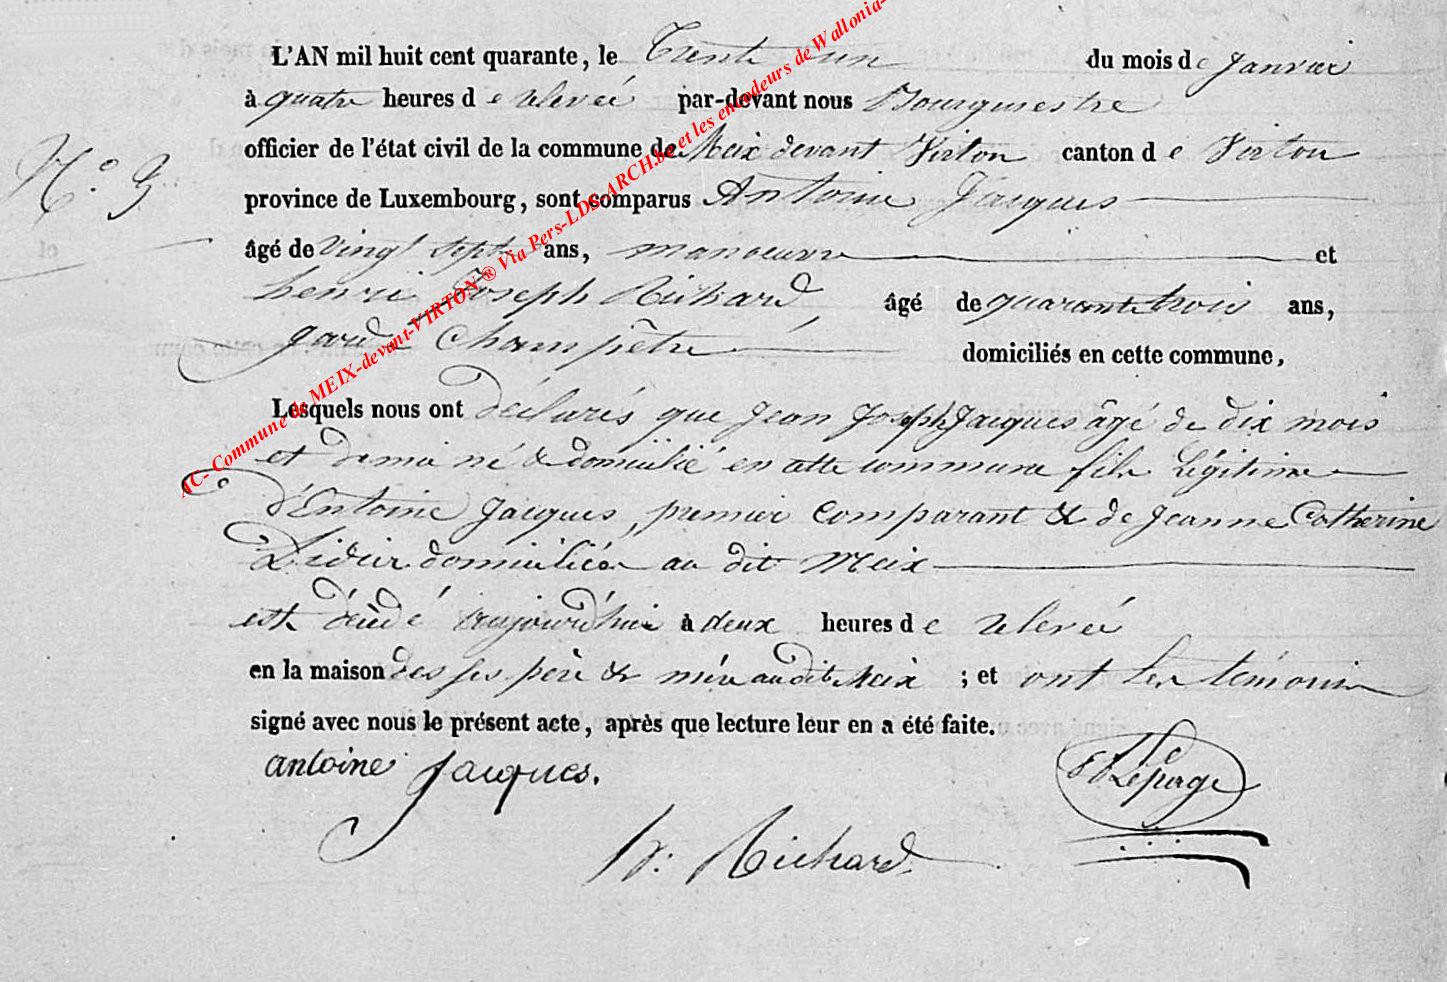 L'AN mil huit cent quarante, le Trente un du mois de Janvier
à quatre heures de relevée par-devant nous Bourgmestre
officier de l'état civil de la commune de Meix devant Virton canton de Virton
N.o 3
province de Luxembourg, sont comparus Antoine Jacques
âgé de vingt sept ans, manoeuvre et
henri Joseph Richard, âgé de quarante trois ans,
garde Champêtre domiciliés en cette commune,
Lesquels nous ont déclarés que Jean Joseph Jacques âgé de dix mois
et demi né & domicilié en cette commune fils Légitime
d'Entoine Jacques, premier Comparant & de Jeanne Catherine
Didier domiciliés au dit Meix
est décédé aujourd'hui à deux heures de relevée
en la maison des ses père & mère au dit Meix ; et ont les témoins
signé avec nous le présent acte, après que lecture leur en a été faite.
antoine Jacques.
Lepage
h: Richard
AC- Commune de MEIX-devant-VIRTON ® Via Pers-LDS-ARCH.be et les encodeurs de Wallonia-